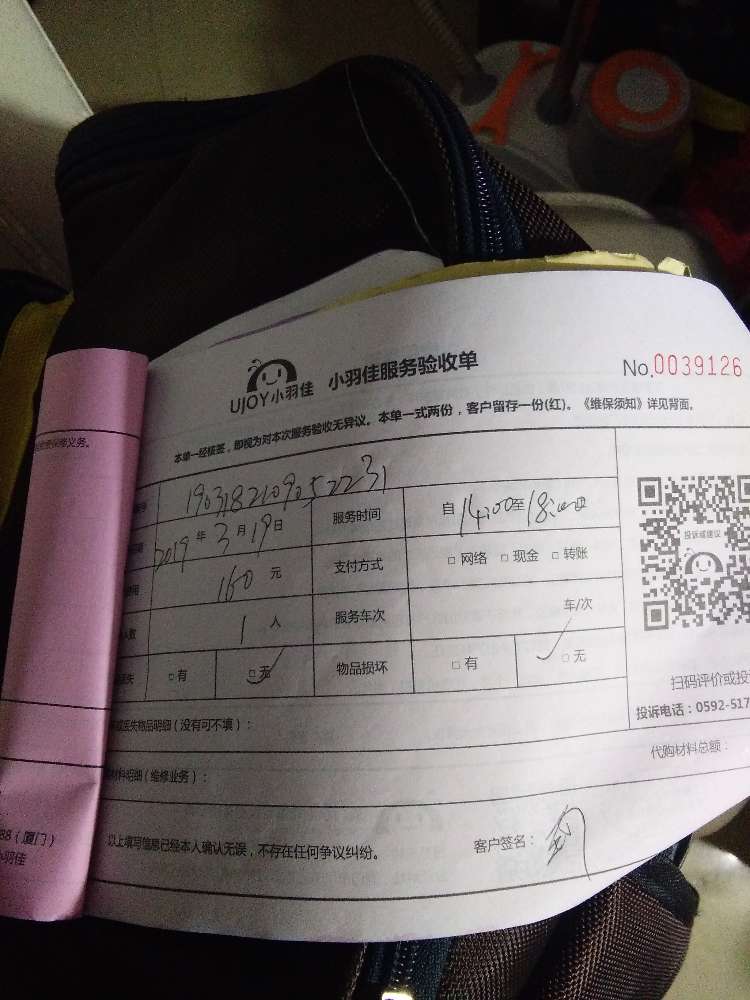 UJOY小羽佳 小羽佳服务验收单 No.0039126
本单一经核签，即视为对本次服务验收无异议。本单一式两份，客户留存一份(红)。《维保须知》详见背面。
务。
服务时间 自14:00至18:00
2019年3月19日
160元 支付方式 □ 网络 □ 现金 □ 转账
人数 1人 服务车次 车/次
□有 □无 物品损坏 □有 □无
投诉或建议
扫码评价或投
投诉电话：0592-517
丢失物品明细（没有可不填）：
代购材料总额：
材料明细（维修业务）：
以上填写信息已经本人确认无误，不存在任何争议纠纷。 客户签名：
88（厦门）
小羽佳